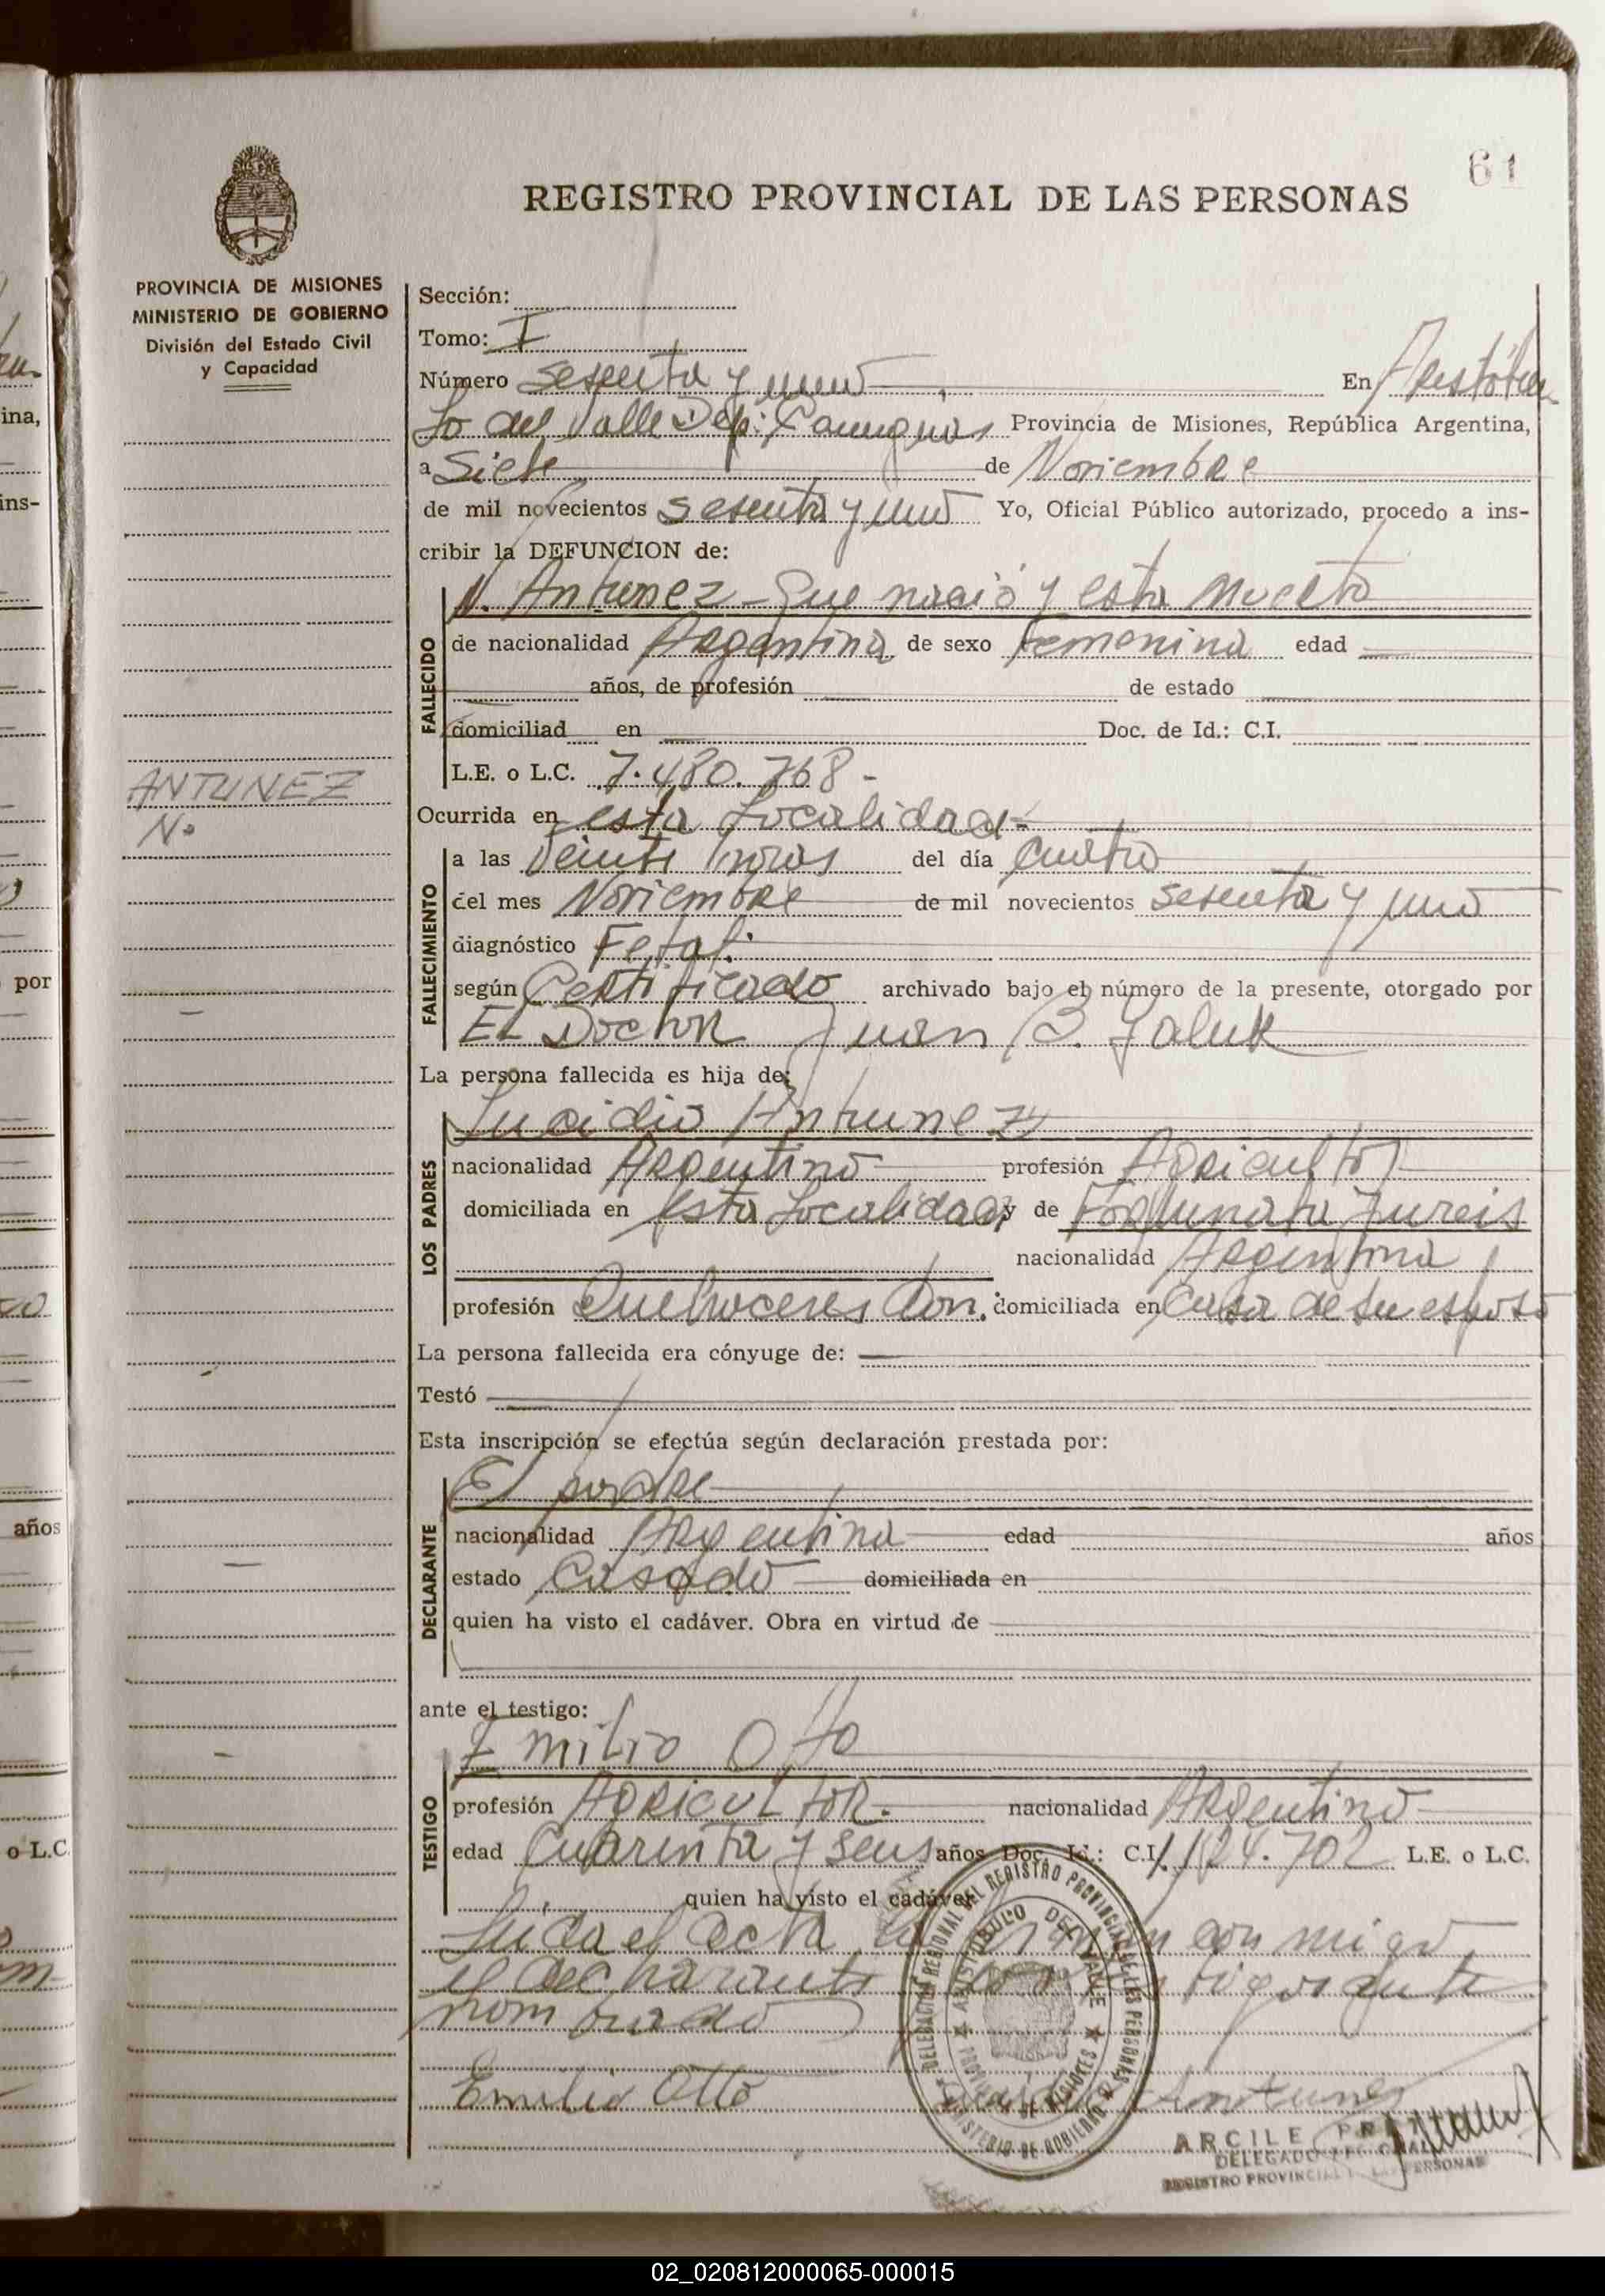 61
REGISTRO PROVINCIAL DE LAS PERSONAS
PROVINCIA DE MISIONES
MINISTERIO DE GOBIERNO
División del Estado Civil
y Capacidad
ANTUNEZ
N.
Sección:
Tomo: I
Número Sesenta y uno En Aristóbu
lo del Valle Dep: Cainguás Provincia de Misiones, República Argentina,
a Siete de Noviembre
de mil novecientos sesenta y uno Yo, Oficial Público autorizado, procedo a ins-
cribir la DEFUNCION de:
N. Antunez - Que nació y esta muerto
FALLECIDO
de nacionalidad Argentina de sexo femenina edad
años, de profesión de estado
domiciliad en Doc. de Id.: C.I.
L.E. o L.C. 7.480.768-
Ocurrida en esta Localidad-
FALLECIMIENTO
a las veinte horas del día cuatro
del mes Noviembre de mil novecientos sesenta y uno
diagnóstico Fetal.
según Certificado archivado bajo el número de la presente, otorgado por
El Doctor Juan B. Jaluk
La persona fallecida es hija de:
Lucidio Antunez
LOS PADRES
nacionalidad Argentino profesión Agricultor
domiciliada en esta Localidad y de Fortunata Jureis
nacionalidad Argentina
profesión Quehaceres Dom. domiciliada en casa de su esposo
La persona fallecida era cónyuge de:
Testó
Esta inscripción se efectúa según declaración prestada por:
El padre
DECLARANTE
nacionalidad Argentina edad años
estado Casado domiciliada en
quien ha visto el cadáver. Obra en virtud de
ante el testigo:
Emilio Otto
TESTIGO
profesión Agricultor. nacionalidad Argentino
edad Cuarenta y seis años Doc. Id.: C.I. 124.702 L.E. o L.C.
quien ha visto el cadáver
Leida el acta la firman con migo
el declarante con el testigo ante
nombrado
Emilio Otto Lucidio Antunez
DELEGACION REGIONAL DEL REGISTRO PROVINCIAL DE LAS PERSONAS
ARISTOBULO DEL VALLE
PROV. DE MISIONES
MINISTERIO DE GOBIERNO
ARCILE
DELEGADO REGIONAL
REGISTRO PROVINCIAL PERSONAS
ina,
ins-
por
años
o L.C.
02_020812000065-000015